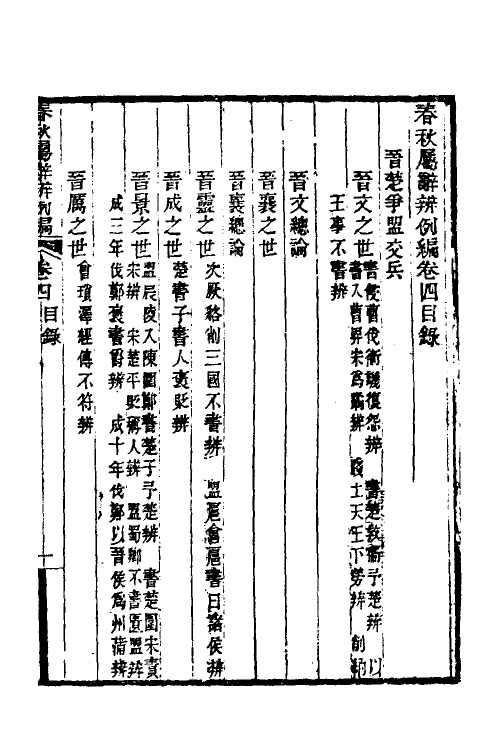 春秋屬辭辨例編卷四目錄
晉楚爭盟交兵
晉文之世 書侵曹伐衛譏復怨辨 書楚救衛予楚辨 以
書入曹畀宋為譎辨 踐土天王下勞辨 削
王事不書辨
晉文總論
晉襄之世
晉襄總論
晉靈之世 次厥貉削三國不書辨 盟扈會扈書曰諸侯辨
楚書子書人褒貶辨
晉成之世
晉景之世 盟辰陵入陳圍鄭書楚子予楚辨 書楚圍宋責
宋辨 宋楚平貶稱人辨 盟蜀卿不書匱盟辨
成三年伐鄭褒書爵辨 成十年伐鄭以晉侯為州蒲辨
晉厲之世 會瑣澤經傳不符辨
春秋屬辭辨例編 卷四 目錄 一